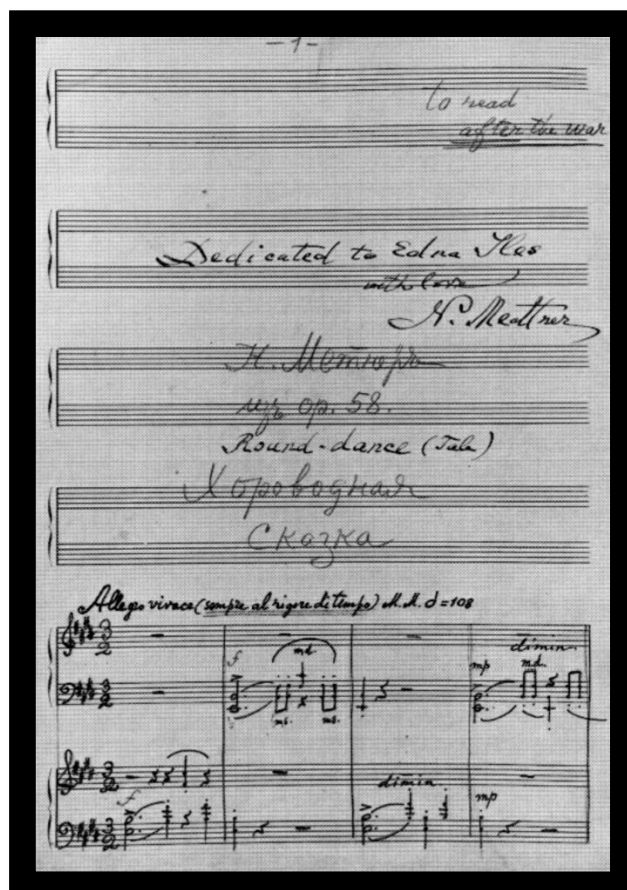 - 1 -
to read
after the war
Dedicated to Edna Iles
with love
N. Medtner
Н. Метнеръ
изъ op. 58.
Round-dance (Tale)
Хороводная
Сказка
Allegro vivace (sempre al rigore di tempo) M.M. 𝅗𝅥 = 108
dimin.
f md. mp md.
ms. ms.
dimin.
f mp